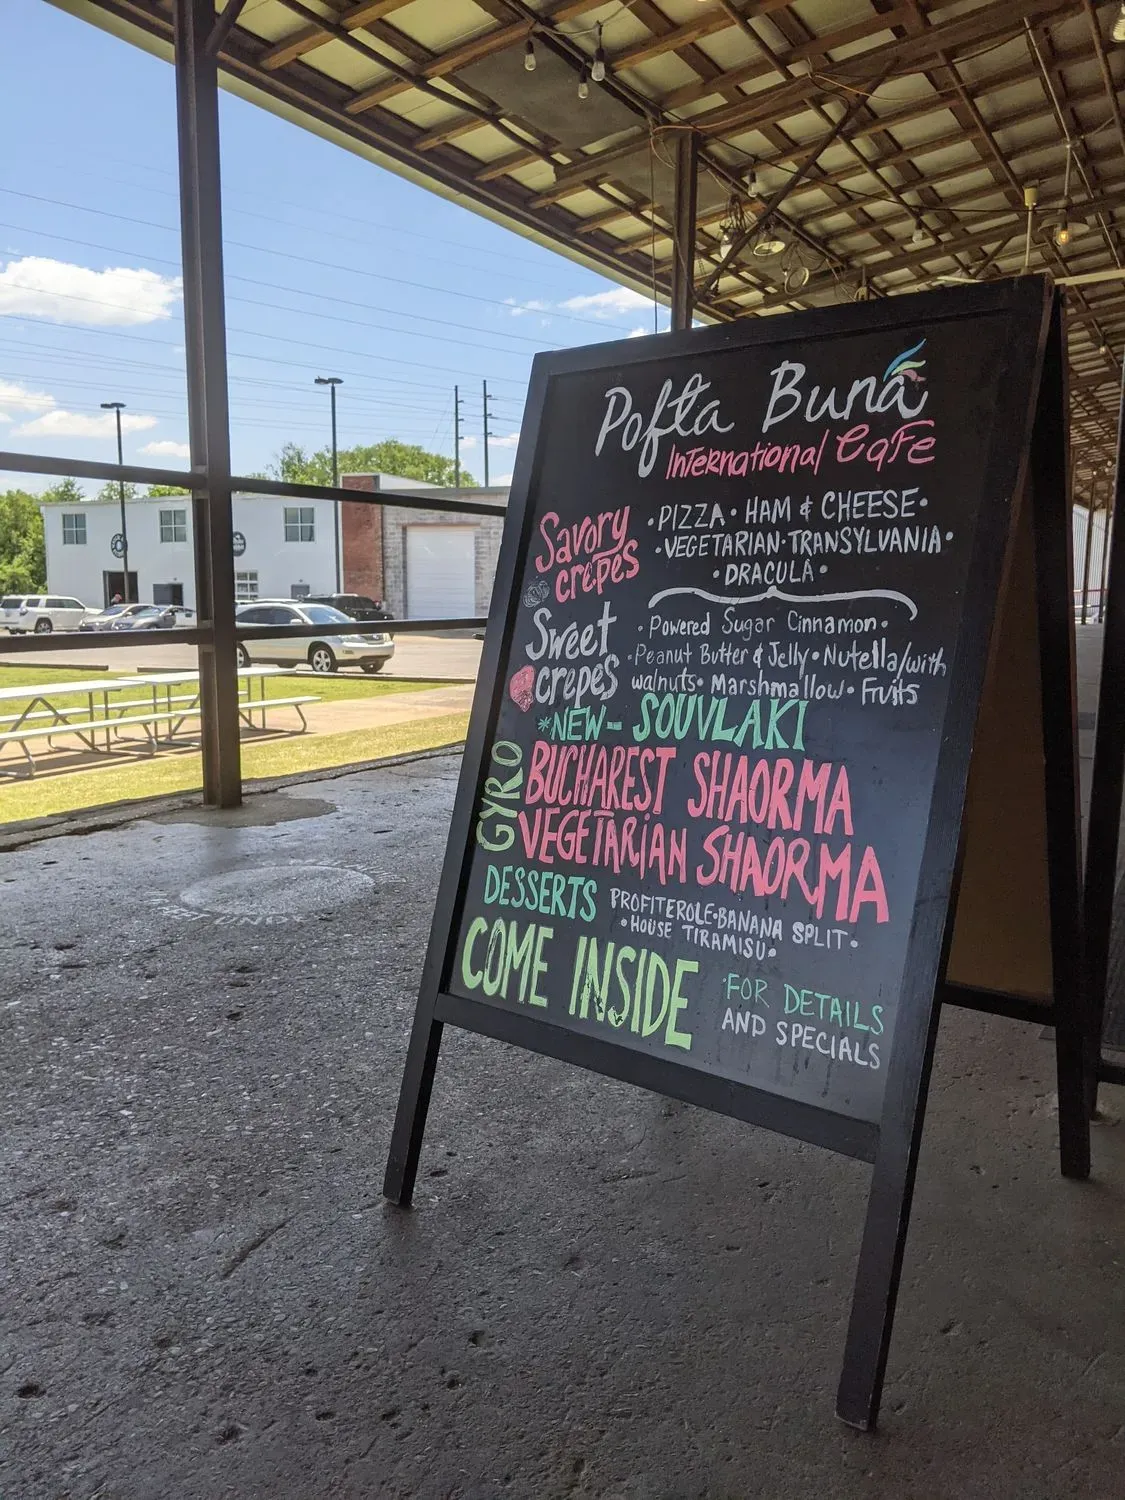 Pofta Bună
International Cafe
Savory crêpes
•PIZZA•HAM & CHEESE•
•VEGETARIAN•TRANSYLVANIA•
•DRACULA•
Sweet crepes
•Powered Sugar Cinnamon•
•Peanut Butter & Jelly•Nutella/with
walnuts•Marshmallow•Fruits
*NEW- SOUVLAKI
GYRO
BUCHAREST SHAORMA
VEGETARIAN SHAORMA
DESSERTS
PROFITEROLE•BANANA SPLIT•
•HOUSE TIRAMISU•
COME INSIDE
FOR DETAILS
AND SPECIALS